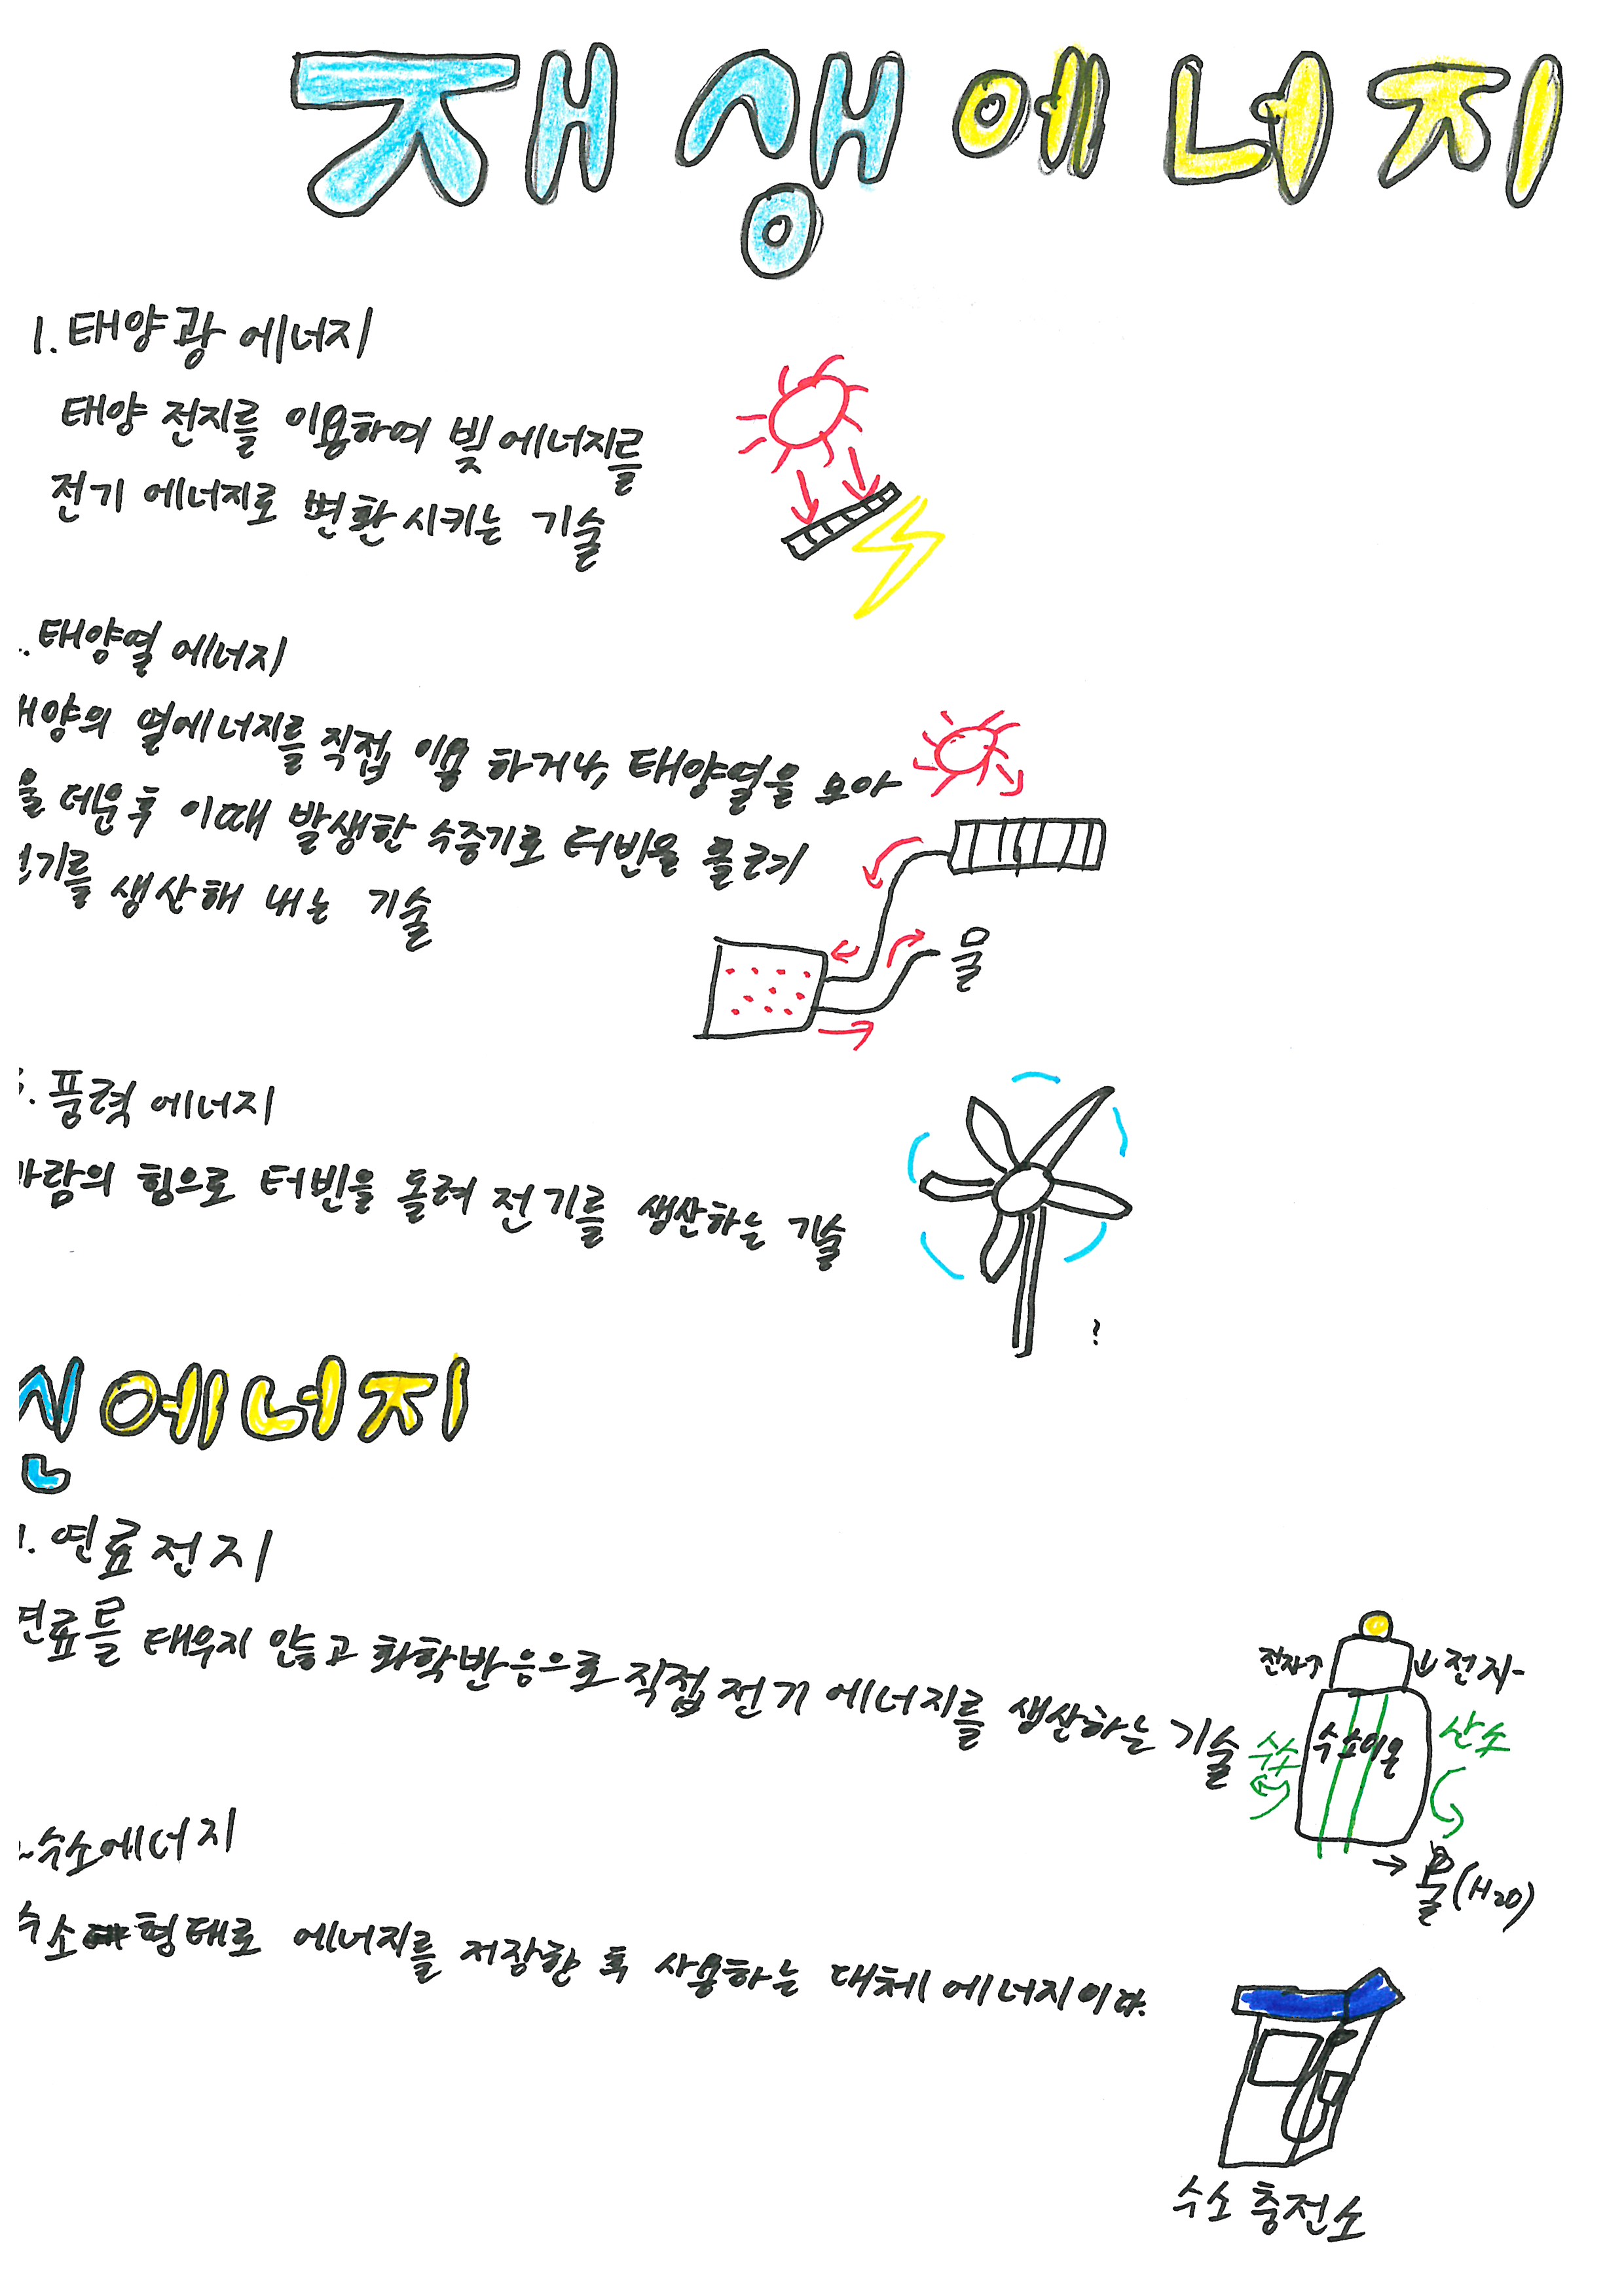 재생에너지
1. 태양광 에너지
태양 전지를 이용하여 빛에너지를
전기 에너지로 변환시키는 기술
. 태양열 에너지
양의 열에너지를 직접 이용 하거나, 태양열을 모아
데운후 이때 발생한 수증기로 터빈을 돌려
기를 생산해 내는 기술
물
. 풍력 에너지
람의 힘으로 터빈을 돌려 전기를 생산하는 기술
?
신에너지
1. 연료전지
연료를 태우지 않고 화학반응으로 직접 전기 에너지를 생산하는 기술
전자↑ ↓전자-
수소 수소이온 산소
→ 물(H2O)
수소에너지
수소 형태로 에너지를 저장한 후 사용하는 대체 에너지이다.
수소 충전소